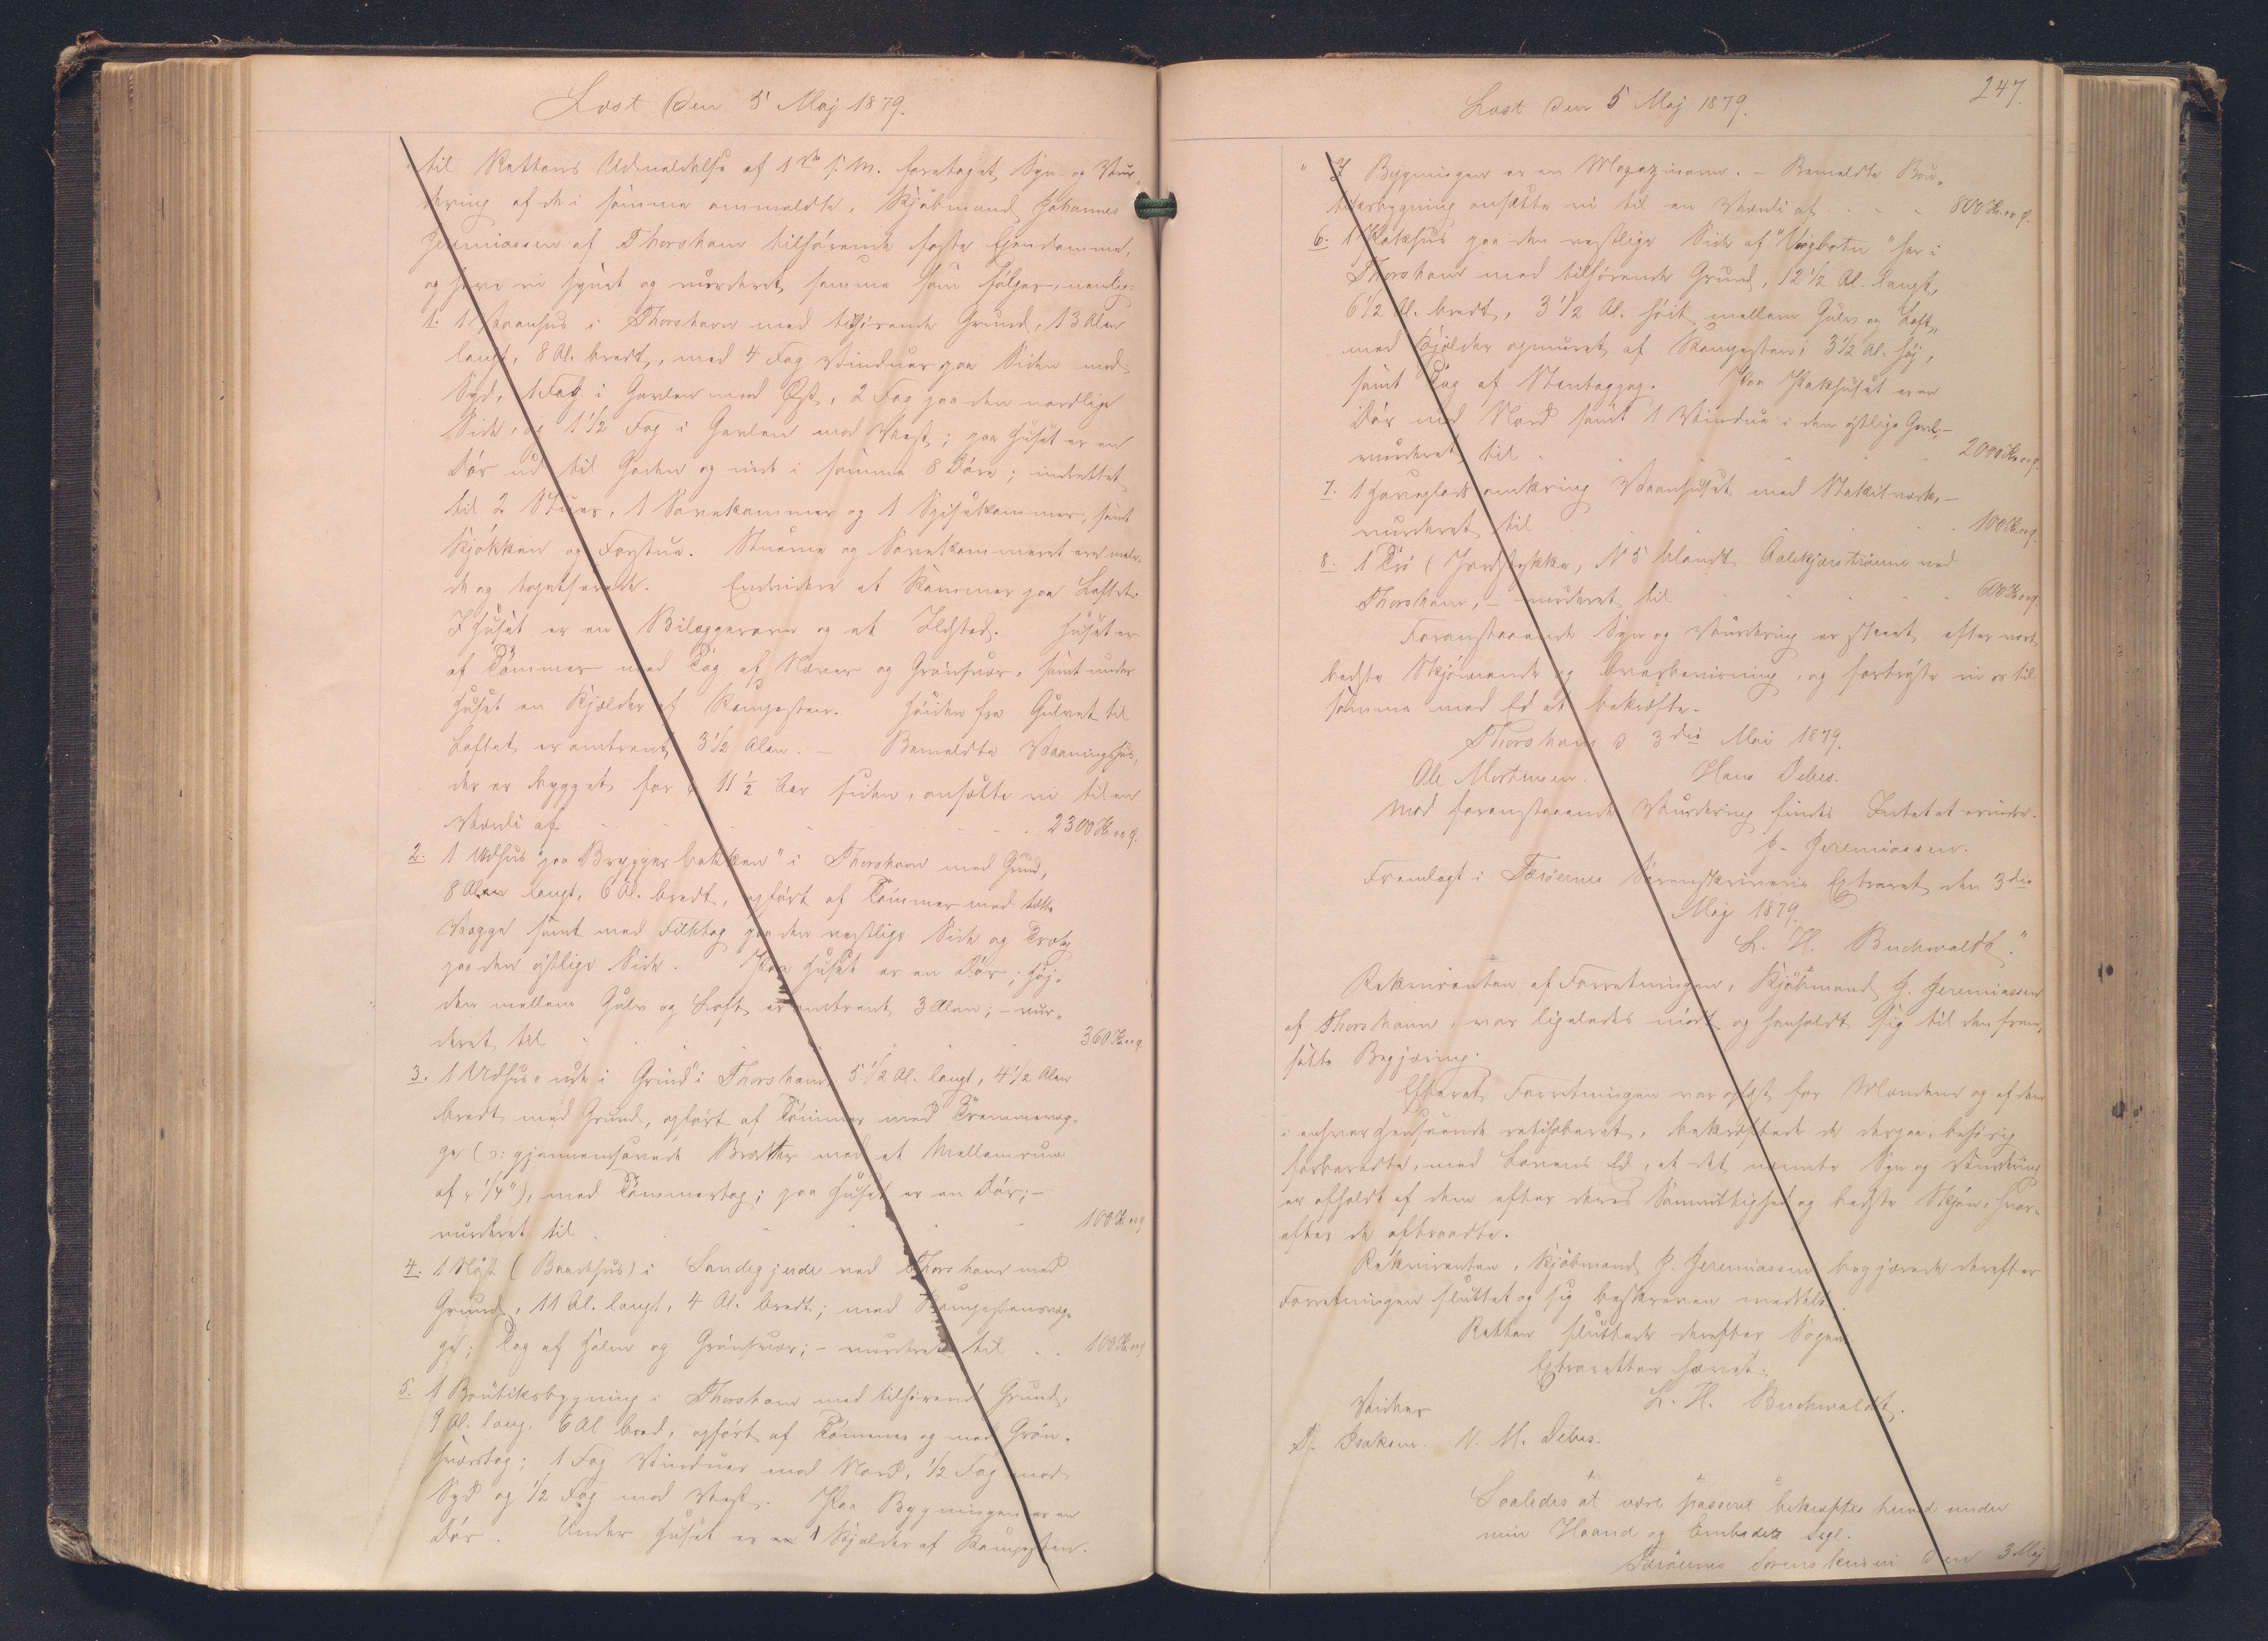 Læst den 5 Maj 1879.
til Rettens Udmeldelse af 1ste s. M. foretaget Syn- og Vur-
dering af de i samme ommeldte, Kjøbmand Johannes
Jeremiassen af Thorshavn tilhørende faste Ejendomme,
og have vi synet og vurderet samme som følger, nemlig:
1. 1 Vaanhus i Thorshavn med tilhørende Grund, 13 Alen
langt, 8 Al. bredt, med 4 Fag Vinduer paa Siden mod
Syd, 1 Fag i Gavlen mod Øst, 2 Fag paa den nordlige
Side, og 1 1/2 Fag i Gavlen mod Vest; paa Huset er en
Dør ud til Gaden og inde i samme 8 Døre; indrettet
til 2 Stuer, 1 Sovekammer og 1 Spisekammer, samt
Kjøkken og Forstue. Stuerne og Sovekammeret ere male-
de og tapetserede. Endvidere et Kammer paa Loftet.
I Huset er en Bilæggerovn og et Ildsted. Huset er
af Tømmer med Tag af Næver og Grønsvær, samt under
Huset en Kjælder af Kampesten. Høiden fra Gulvet til
Loftet er omtrent 3 1/2 Alen. — Bemeldte Vaaningshus,
der er bygget for 11 1/2 Aar siden, ansætte vi til en
Værdi af 2300 Kr. " Ø.
2. 1 Udhus paa "Bryggerbakken" i Thorshavn med Grund,
8 Alen langt, 6 Al. bredt, opført af Tømmer med tætte
Vægge samt med Filttag paa den vestlige Side og Trætag
paa den østlige Side. Paa Huset er en Dør; Høj-
den mellem Gulv og Loft er omtrent 3 Alen; — vur-
deret til 360 Kr. " Ø.
3. 1 Udhus "ude i Grund" i Thorshavn, 5 1/2 Al. langt, 4 1/2 Alen
bredt med Grund, opført af Tømmer med Tremmevæg-
ge (ɔ: gjennemsavede Brædder med et Mellemrum
af 1/4"), med Tømmertag; paa Huset er en Dør; —
vurderet til 100 Kr. " Ø
4. 1 Nøst (Baadhus) i Sandegjerde ved Thorshavn med
Grund, 11 Al. langt, 4 Al. bredt; med Kampestensvæg-
ge; Tag af Halm og Grønsvær; — vurderet til 100 Kr. " Ø
5. 1 Boutiksbygning i Thorshavn med tilhørende Grund,
9 Al. lang, 6 Al bred, opført af Tømmer og med Grøn-
sværstag; 1 Fag Vinduer mod Nord, 1/2 Fag mod
Syd og 1/2 Fag mod Vest. Paa Bygningen er en
Dør. Under Huset er en 1 Kjælder af Kampesten.
247.
Læst den 5 Maj 1879.
" I Bygningen er en Magazinovn. — Bemeldte Bou-
tiksbygning ansætte vi til en Værdi af 800 Kr. " Ø.
6. 1 Pakhus paa den vestlige Side af "Vaagbotn" her i
Thorshavn med tilhørende Grund, 12 1/2 Al. langt,
6 1/2 Al. bredt, 3 1/2 Al. høit mellem Gulv og Loft,
med Kjælder opmuret af Kampesten, 3 1/2 Al. høj,
samt Tag af Stentagpap. Paa Pakhuset er en
Dør mod Nord samt 1 Vindue i den østlige Gavl; —
vurderet til 2000 Kr. " Ø.
7. 1 Haveplads omkring Vaanhuset med Stakitværk, —
vurderet til 100 Kr. " Ø.
8. 1 Trø (Jordstykke) N 5 blandt Aalekjærstrøerne ved
Thorshavn, — vurderet til 600 Kr. " Ø.
Foranstaaende Syn og Vurdering er skeet efter vort
bedste Skjønnende og Overbevisning, og fortrøste vi os til
samme med Ed at bekræfte.
Thorshavn d 3die Mai 1879.
Ole Mortensen. Hans Debes.
Mod foranstaaende Vurdering findes Intet at erindre.
J. Jeremiassen.
Fremlagt i Færøernes Sorenskriveris Extraret den 3die
Maj 1879.
L. H. Buchwaldt."
Rekvirenten af Forretningen, Kjøbmand J. Jeremiassen
af Thorshavn, var ligeledes mødt og henholdt sig til den frem-
satte Begjæring.
Efterat Forretningen var oplæst for Mændene og af dem
i enhver Henseende ratihaberet, bekræftede de derpaa, behørig
forberedte, med Lovens Ed, at det nævnte Syn og Vurdering
er afholdt af dem efter deres Samvittighed og bedste Skjøn, hvor-
efter de aftraadte.
Rekvirenten, Kjøbmand J. Jeremiassen begjærede derefter
Forretningen sluttet og sig beskreven meddelt.
Retten sluttede derefter Sagen.
Extraretten hævet.
L. H. Buchwaldt.
Vidner
D. Isaksen. N. M. Debes.
Saaledes at være passeret bekræftes herved under
min Haand og Embedets Segl.
Færøernes Sorenskriveri den 3 Maj